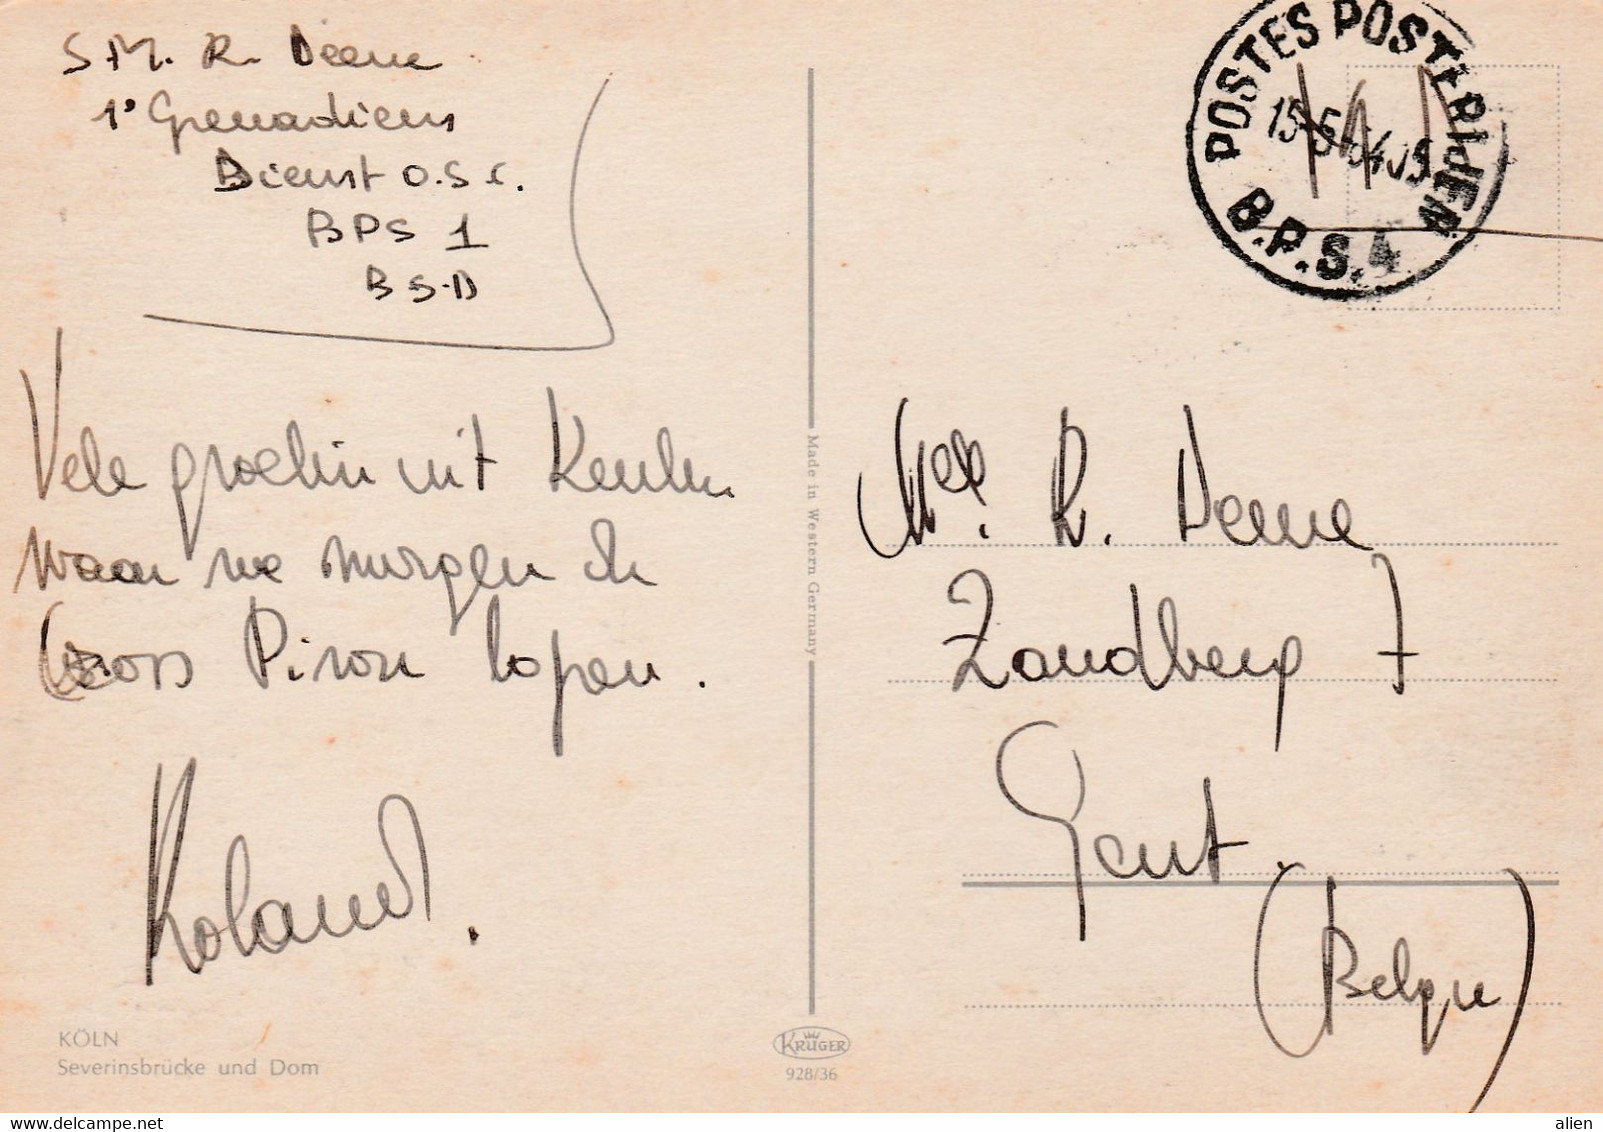 S.M. R. Deene
1° Grenadiers
Dienst O.S.C.
BPS 1
BSD
Vele groeten uit Keulen
waar we morgen de
Cross Piron lopen.
Roland.
KÖLN
Severinsbrücke und Dom
Made in Western Germany
KRÜGER
928/36
POSTES POSTERIJEN
15-5-64
B.P.S.4
R. Deene
Zandberg 7
Gent.
(Belgie)
delcampe.net
allen